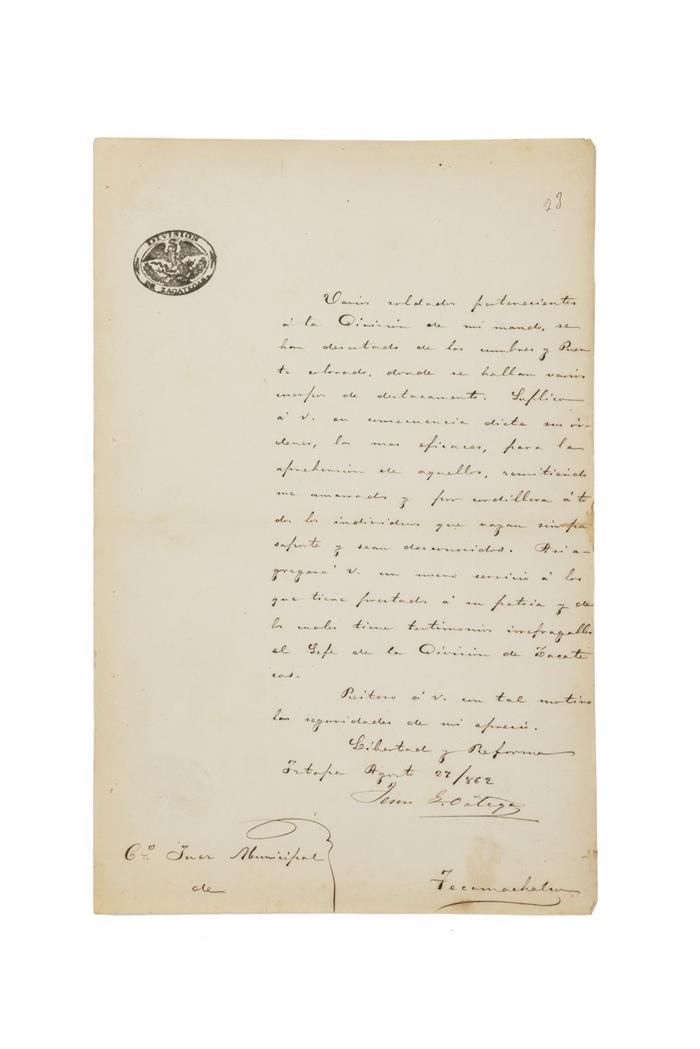 23
DIVISION
DE ZACATECAS
Varios soldados pertenecientes
á la Division de mi mando, se
han desertado de las cumbres y Puen
te colorado, donde se hallan varios
cuerpos de destacamento. Suplico
á V. en consecuencia dicte sus ór
denes, las mas eficaces, para la
aprehension de aquellos, remitiendo
me amarrados y por cordillera á to
dos los individuos que vayan sin pa
saporte y sean desconocidos. Asi a-
gregará V. un nuevo servicio á los
que tiene prestados á su patria y de
los cuales tiene testimonios irrefragables
el Gefe de la Division de Zacate
cas.
Reitero á V. con tal motivo
las seguridades de mi aprecio.
Libertad y Reforma
Ixtapa Agosto 27/862
Jesus G. Ortega
C.º Juez Municipal
de
Tecamachalco